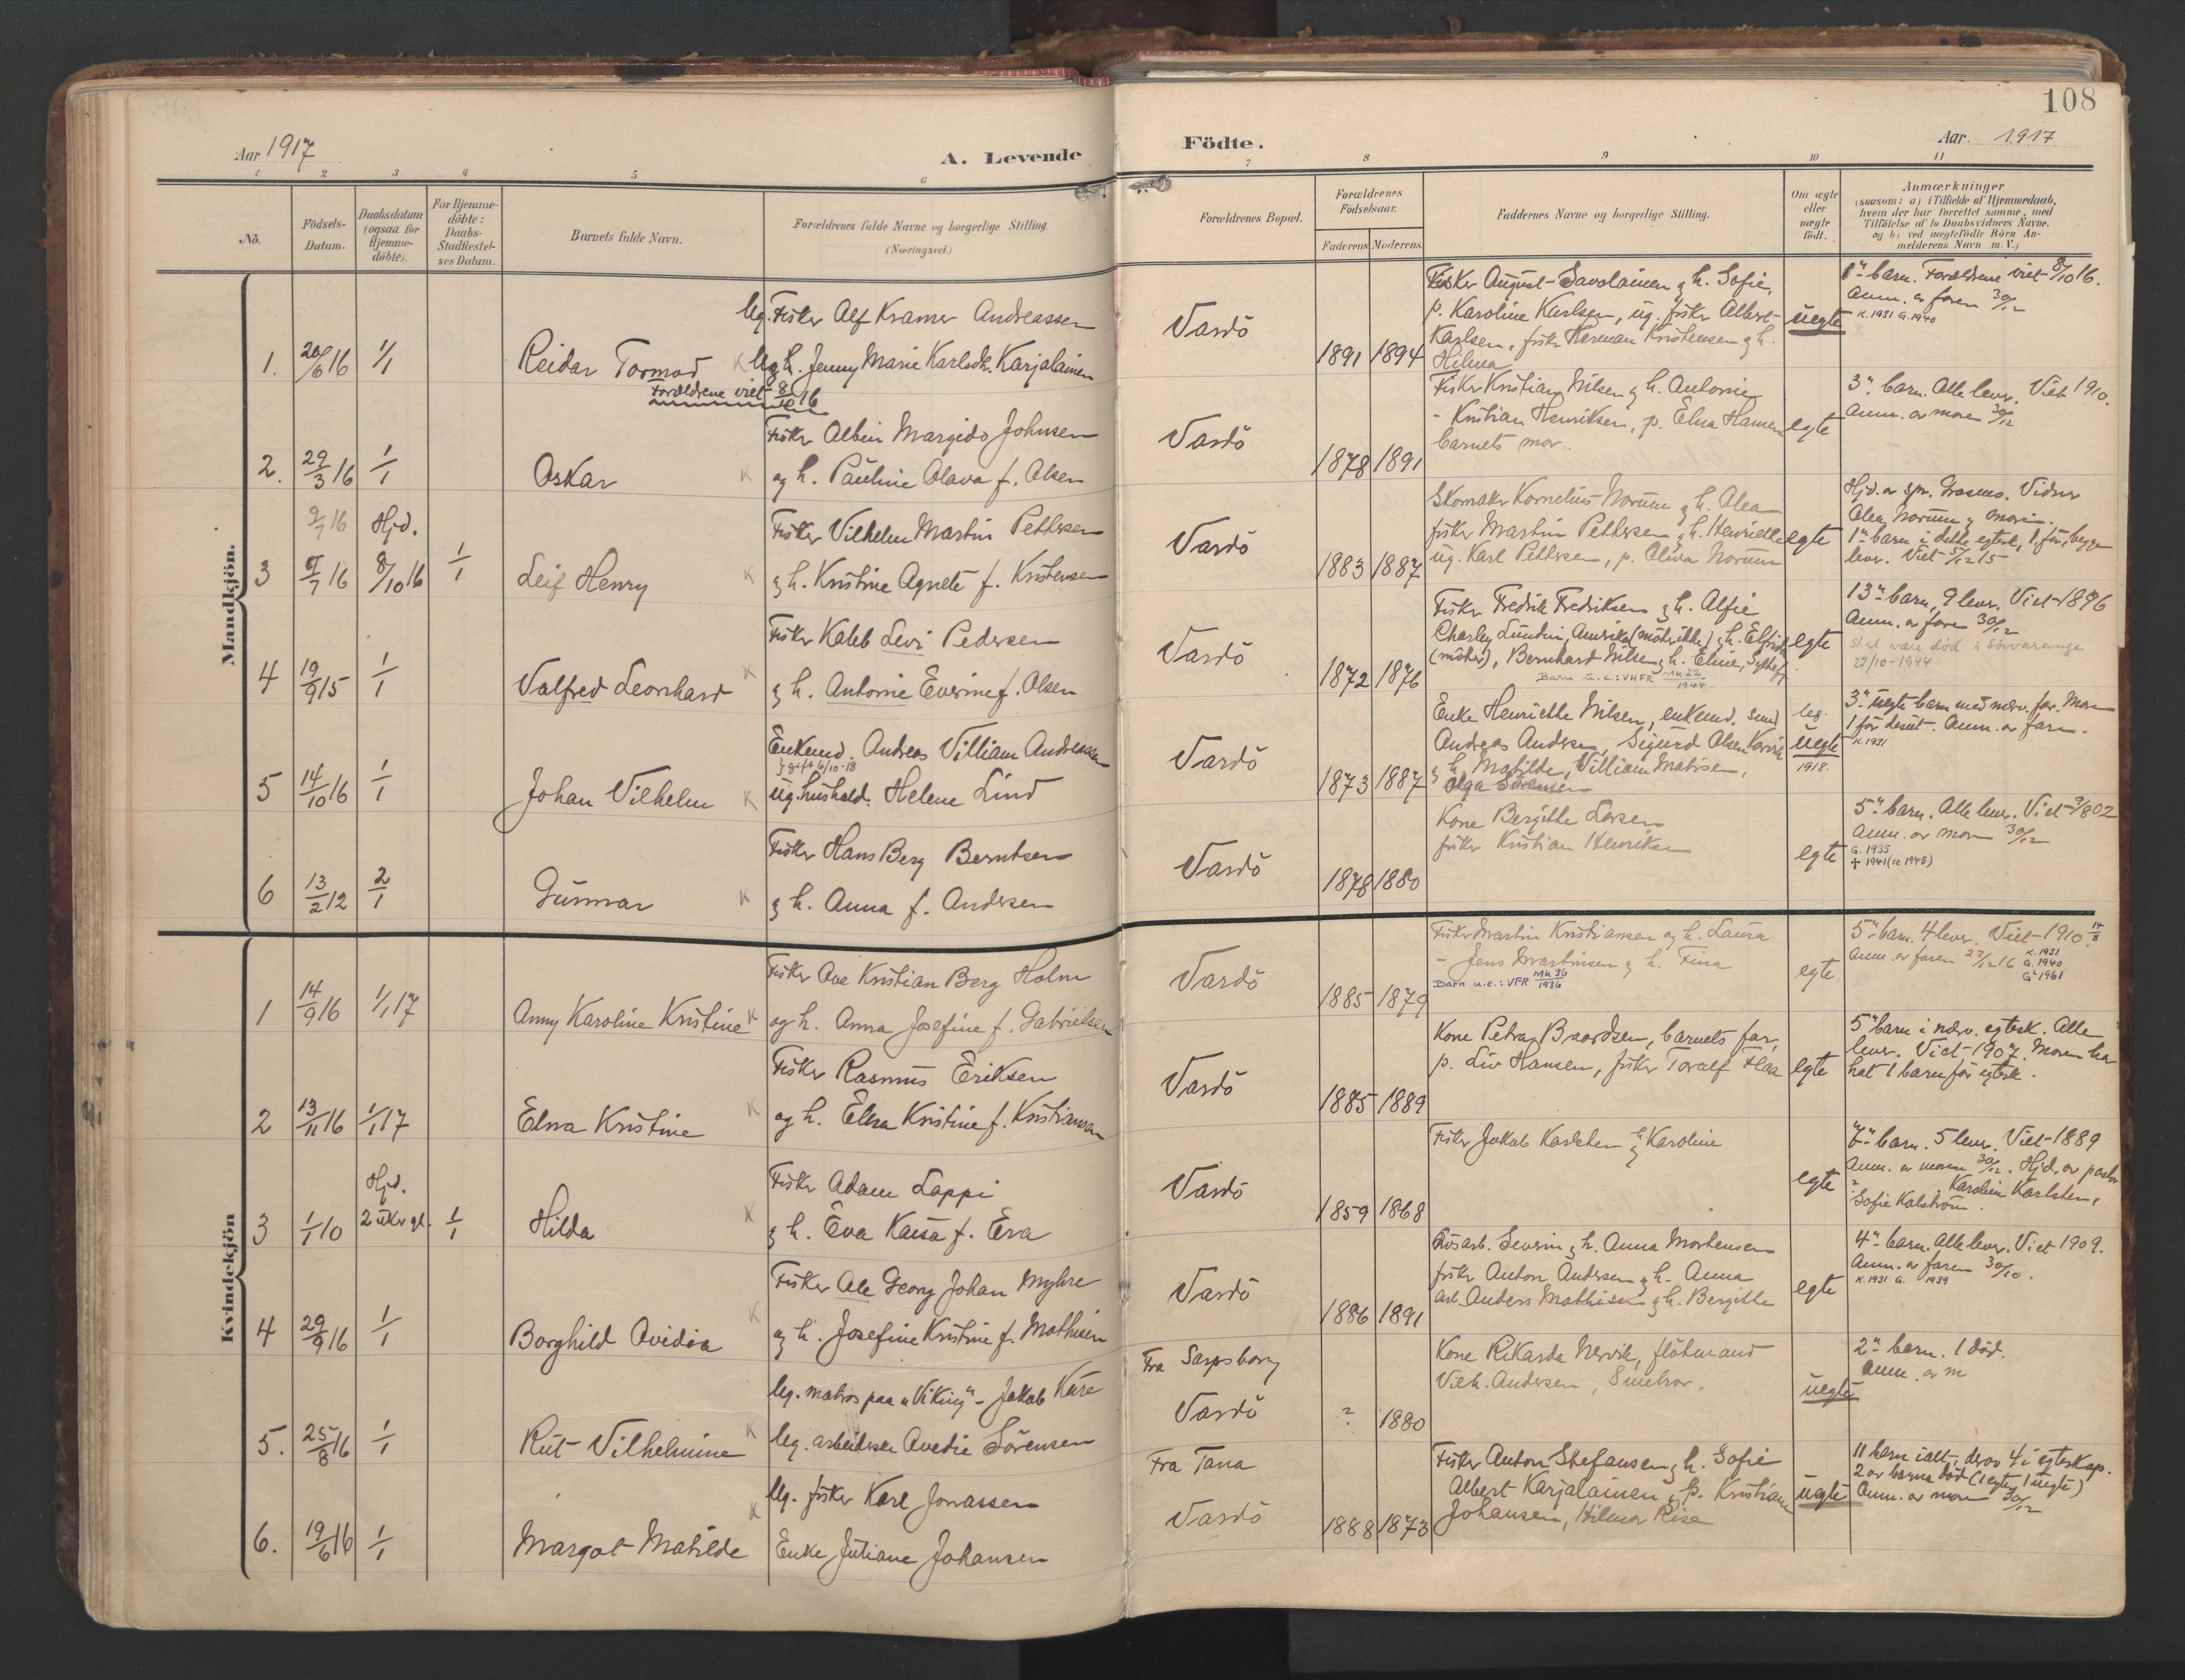 108
Aar 1917
A. Levende Födte.
Aar. 1917
1 2 3 4 5 6 7 8 9 10 11
No.
Födsels-Datum.
Daabsdatum (ogsaa for Hjemme-döbte).
For Hjemme-döbte: Daabs-Stadfæstel-ses Datum.
Barnets fulde Navn.
Forældrenes fulde Navne og borgerlige Stilling. (Næringsvei.)
Forældrenes Bopæl.
Forældrenes Födselsaar.
Faderens Moderens
Faddernes Navne og borgerlige Stilling.
Om ægte eller uægte födt.
Anmærkninger
(saasom: a) i Tilfælde af Hjemmedaab,
hvem der har forrettet samme, med
Tilföielse af to Daabsvidners Navne,
og b) ved uægtefödte Börn An-
melderens Navn m. V.)
Mandkjön.
1. 20/6 16 1/1 Reidar Tormod
Forældrene viet 8/10 16
Ug. Fisker Alf Kramer Andreassen
Ug h. Jenny Marie Karlsdt. Karjalainen
Vardö 1891 1894
Fisker August Savolainen og h. Sofie,
p. Karoline Karlsen, ug. fisker Albert
Karlsen, fisker Herman Kristensen og h.
Hilma
uegte
1ste barn. Forældrene viet 8/10 16.
Anm. av faren 30/12
K. 1931 G. 1940
2. 29/3 16 1/1 Oskar
Fisker Albin Margido Johnsen
og h. Pauline Olava f. Olsen
Vardö 1878 1891
Fisker Kristian Nilsen og h. Antonie
- Kristian Henriksen, p. Elna Hansen
barnets mor.
egte
3" barn. Alle lever. Viet 1910.
Anm. av moren 30/12
3 9/7 16 Hjd.
9/7 16 8/10 16 1/1 Leif Henry
Fisker Vilhelm Martin Pettersen
og h. Kristine Agnete f. Kristensen
Vardö 1883 1887
Skomaker Kornelius Norum og h. Olea
fisker Martin Pettersen og h. Henriette
ug. Karl Pettersen, p. Oliva Norum
egte
Hjd. av spr. Grasmo. Vidner
Olea Norum og moren.
1" barn i dette egtesk., 1 för, begge
lever. Viet 5/12 15
4 19/9 15 1/1 Valfred Leonhard
Fisker Kaleb Levi Pedersen
og h. Antonie Everine f. Olsen
Vardö 1872 1876
Fisker Fredrik Fredriksen og h. Alfie
Charley Lundin, Amerika (mötte ikke) og h. Elfrida
(mötte), Bernhard Nilsen og h. Eline,
Barn u.e.: VHFR Mk 22/1944
egte
13" barn, 9 lever. Viet 1896
Anm. av faren 30/12
skal være död i Sörvaranger
23/10-1944
5 14/10 16 1/1 Johan Vilhelm
Enkemd. Andreas Villiam Andreassen
} gift 6/10-18
ug. hushold. Helene Lind
Vardö 1873 1887
Enke Henriette Nilsen, enkemd. smed
Andreas Andersen, Sigurd Olsen Kervik
og h. Matilde, Villiam Matisen,
Olga Sörensen
leg.
uegte
1918.
3" uegte barn med nærv. far. Moren
1 för derut. Anm. av faren.
K. 1931
6 13/2 12 2/1 Gunnar
Fisker Hans Berg Berntsen
og h. Anna f. Andersen
Vardö 1878 1880
Kone Bergitte Larsen
fisker Kristian Henriksen
egte
5" barn. Alle lever. Viet 9/8 02
Anm. av moren 30/12
G. 1935
† 1941 (se 1945)
Kvindekjön
1 14/9 16 1/1 17 Anny Karoline Kristine
Fisker Ove Kristian Berg Holm
og h. Anna Josefine f. Gabrielsen
Vardö 1885 1879
Fisker Martin Kristiansen og h. Laura
- Jens Martinsen og h. Fina
Barn u.e.: VFR Mk 36/1936
egte
5" barn. 4 lever. Viet 1910 14/8
Anm. av faren 27/12 16
K. 1931
G. 1940
G² 1961
2 13/11 16 1/1 17 Elna Kristine
Fisker Rasmus Eriksen
og h. Elna Kristine f. Kristiansen
Vardö 1885 1889
Kone Petra Baardsen, barnets far,
p. Liv Hansen, fisker Toralf Haa
egte
5" barn i nærv. egtesk. Alle
lever. Viet 1907. Moren har
hat 1 barn för egtesk.
3 1/1 10 Hjd.
2 uker gl. 1/1 Hilda
Fisker Adam Lappi
og h. Eva Kaisa f. Era
Vardö 1859 1868
Fisker Jakob Karlsten og h. Karoline
egte
7" barn. 5 lever. Viet 1889
Anm. av moren 30/12. Hjd. av
Karoline Karlsten,
Sofie Kalström.
4 29/9 16 1/1 Borghild Ovidia
Fisker Ole Georg Johan Myhre
og h. Josefine Kristine f. Mathisen
Vardö 1886 1891
Severin og h. Anna Mortensen
fisker Anton Andersen og h. Anna
arb. Anders Mathisen og h. Bergitte
egte
4" barn. Alle lever. Viet 1909.
Anm. av faren 30/10.
K. 1931 G. 1939
5. 25/8 16 1/1 Rut Vilhelmine
Ug. matros paa "Viking" - Jakob
Ug. arbeiderske Ovedie Sörensen
Fra Sarpsborg
Vardö ? 1880
Kone Rikarda Nervik, flötmand
Vilh. Andersen,
uegte
2" barn. 1 död.
Anm. av m
6. 19/6 16 1/1 Margot Matilde
Ug. fisker Karl Jonassen
Enke Juliane Johansen
Fra Tana
Vardö 1888 1873
Fisker Anton Stefansen og h. Sofie
Albert Karjalainen og p. Kristiane
Johansen, Hilmar Risa
uegte
11 barn ialt, derav 4 i egteskap.
2 av barna död (1 egte, 1 uegte)
Anm. av moren 30/12